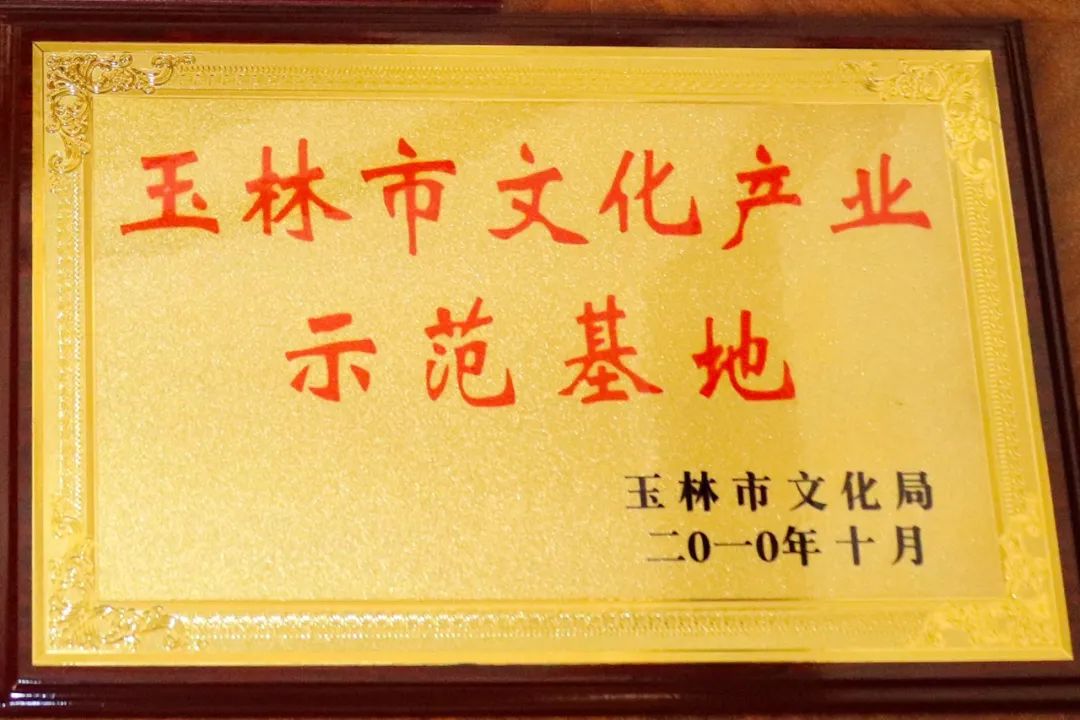 玉林市文化产业
示范基地
玉林市文化局
二0一0年十月